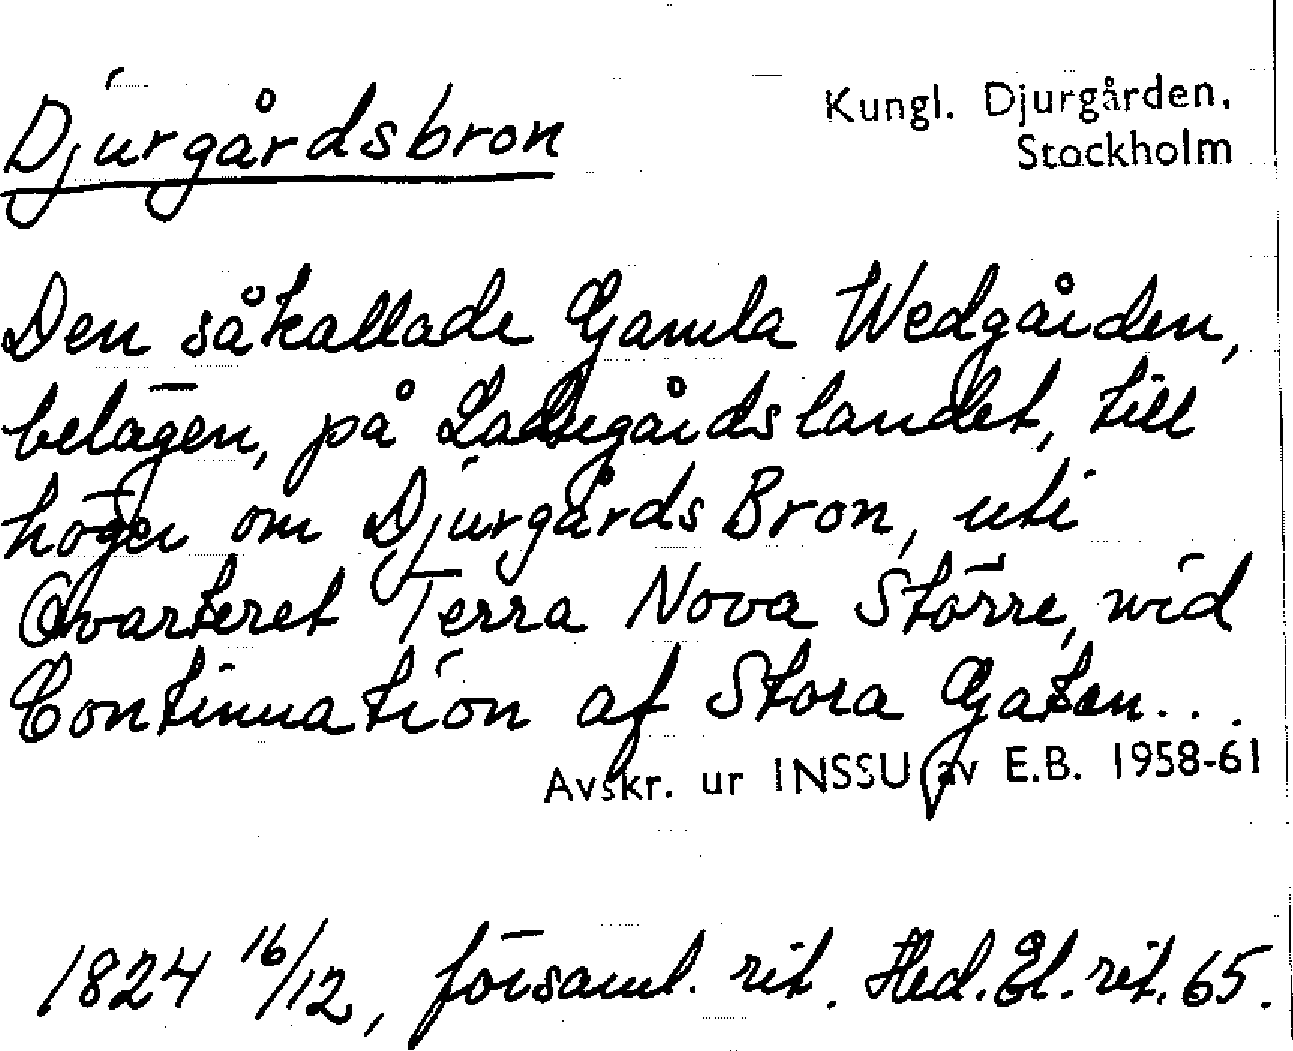 Djurgårdsbron
Kungl. Djurgården,
Stockholm
Den såkallade Gamla Wedgården,
belägen, på Ladugårdslandet, till
höger om Djurgårds Bron, uti
Qvarteret Terra Nova Större, wid
Continuation af Stora Gatan...
Avskr. ur INSSU av E.B. 1958-61
1824 16/12, församl. rit. Hed. El. rit. 65.